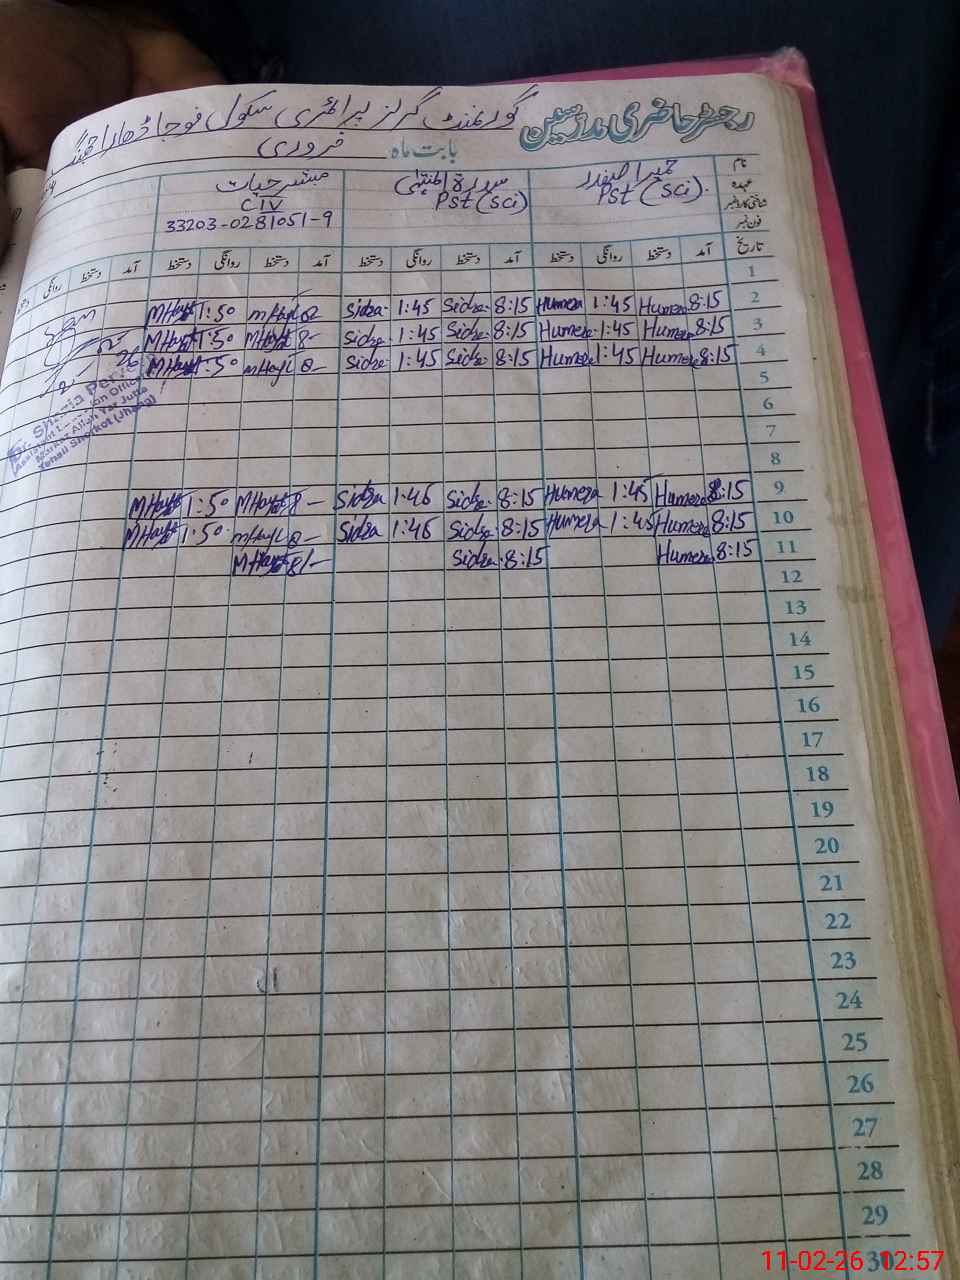 رجسٹر حاضری مدرسین گورنمنٹ گرلز پرائمری سکول
بابت ماہ فروری
نام
عہدہ
شناختی کارڈ نمبر
فون نمبر
Pst (Sci).
Pst (Sci)
مبشر حیات
CIV
33203-0281051-9
تاریخ آمد دستخط روانگی دستخط آمد دستخط روانگی دستخط آمد دستخط روانگی دستخط آمد دستخط روانگی
1
2 8:15 Humera 1:45 Humera 8:15 Sidra 1:45 Sidra 8 MHayat 1:50 MHayat
3 8:15 Humera 1:45 Humera 8:15 Sidra 1:45 Sidra 8- MHayat 1:50 MHayat
4 8:15 Humera 1:45 Humera 8:15 Sidra 1:45 Sidra 8- MHayat 1:50 MHayat
5
6
7
8
9 8:15 Humera 1:45 Humera 8:15 Sidra 1:46 Sidra 8- MHayat 1:50 MHayat
10 8:15 Humera 1:45 Humera 8:15 Sidra 1:46 Sidra 8- MHayat 1:50 MHayat
11 8:15 Humera 8:15 Sidra 8/- MHayat
12
13
14
15
16
17
18
19
20
21
22
23
24
25
26
27
28
29
30
Markaz Allah Yar Juta
Tehsil Shorkot (Jhang)
11-02-26 12:57